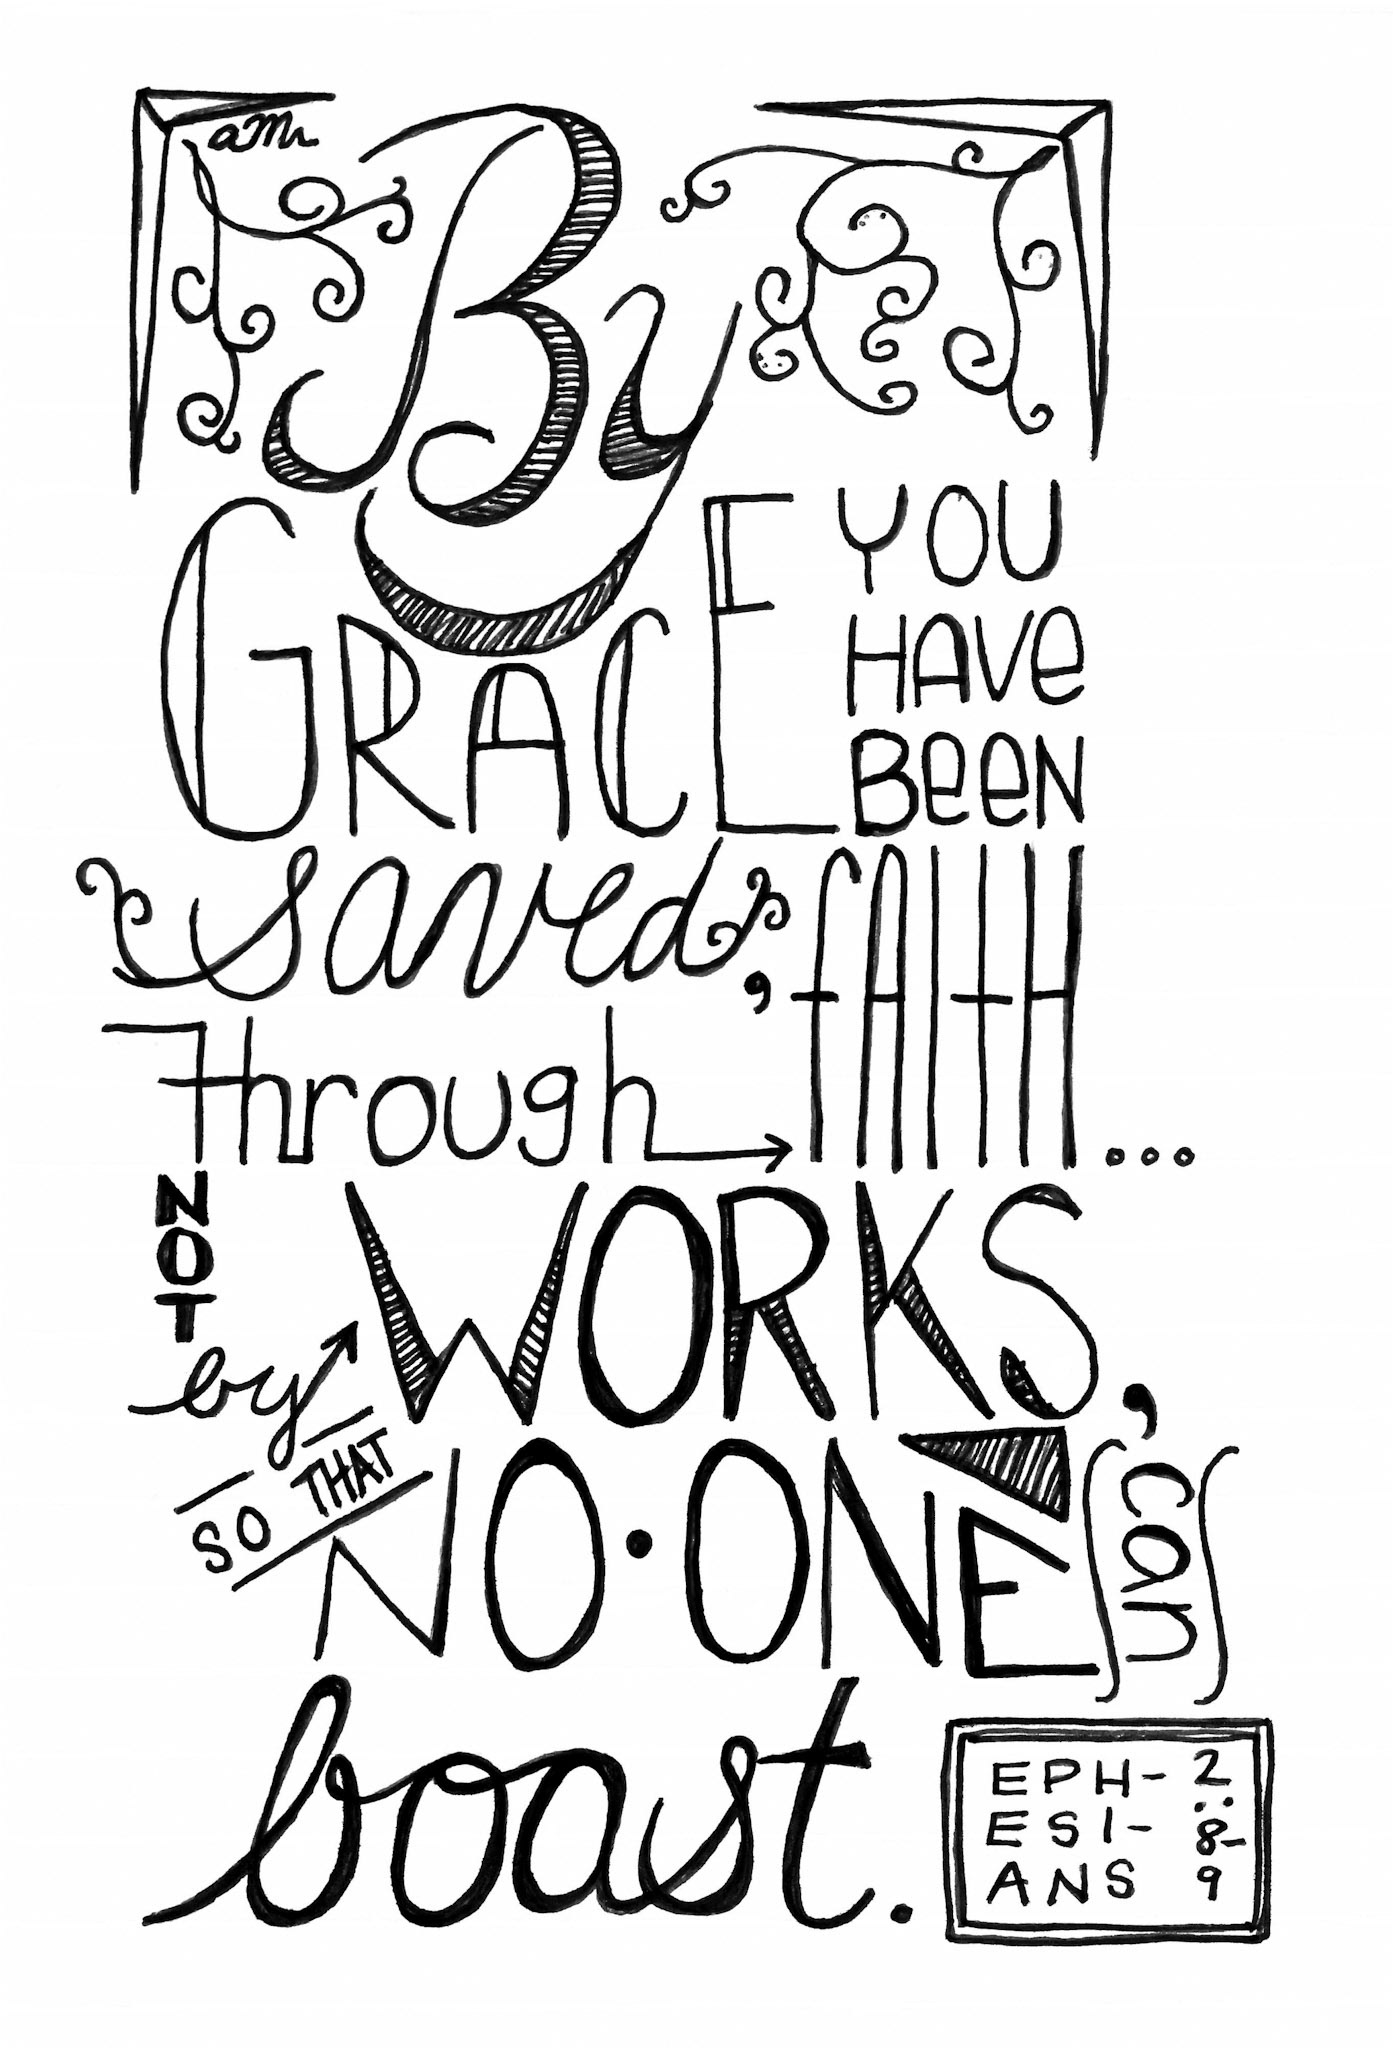 amr
By
GRACE
YOU
HAVe
BeeN
saved,
through
fAItH...
NOT
by
WORKS,
SO THAT
NO • ONE
can
boast.
EPH- 2:
ESI- 8-
ANS 9